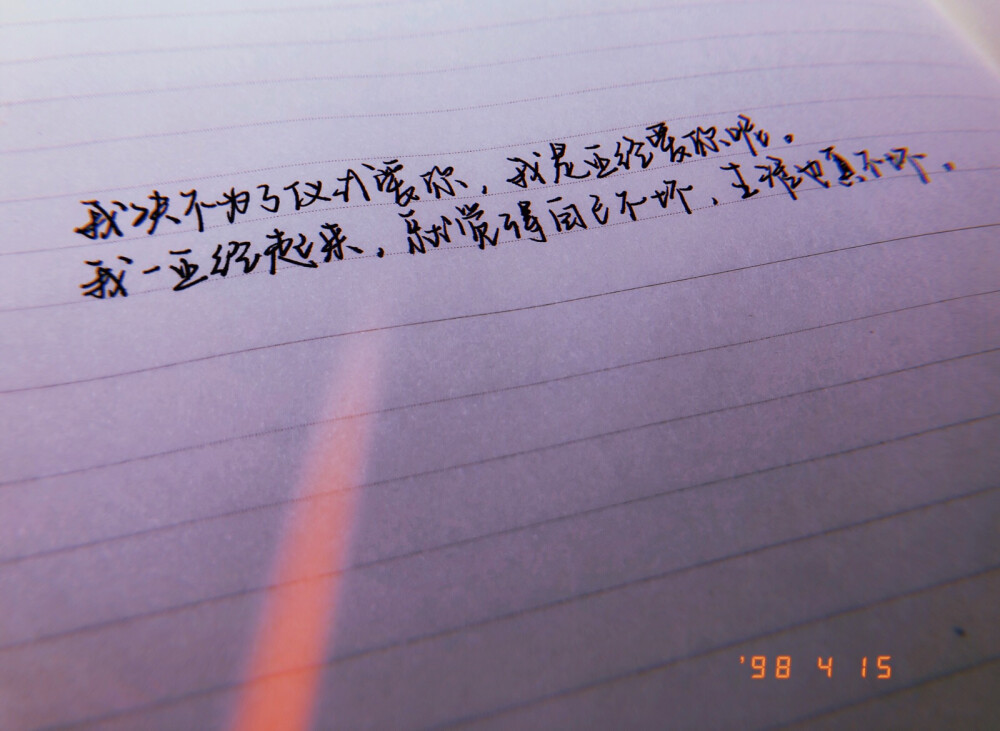 我决不为了仪式爱你，我是正经爱你呢。
我一正经起来，就觉得自己不坏，生活也真不坏。
'98 4 15